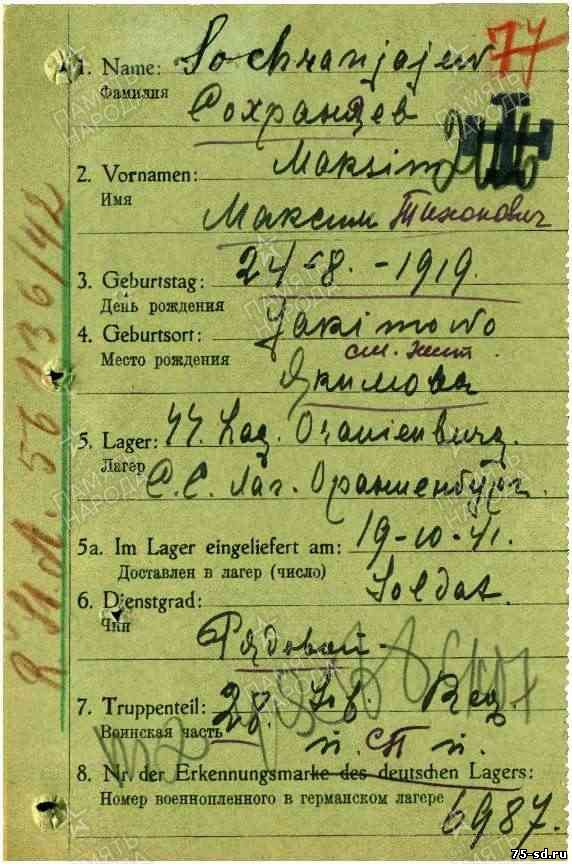 77
1. Name: Sochranjajew
Фамилия Сохраняев
2. Vornamen: Maksim
Имя
Максим Тихонович
3. Geburtstag: 24-8.-1919.
День рождения
4. Geburtsort: Jakimowo
Место рождения см. жит.
Якимова
5. Lager: SS. Lag. Oranienburg.
Лагер С.С. Лаг. Ораниенбург.
5a. Im Lager eingeliefert am: 19-10-41.
Доставлен в лагер (число)
6. Dienstgrad: Soldat.
Чин
Рядовой
7. Truppenteil: 28. Inf. Reg
Воинская часть п.
8. Nr. der Erkennungsmarke des deutschen Lagers:
Номер военнопленного в германском лагере
6987.
56136/42
ПАМЯТЬ НАРОДА
75-sd.ru